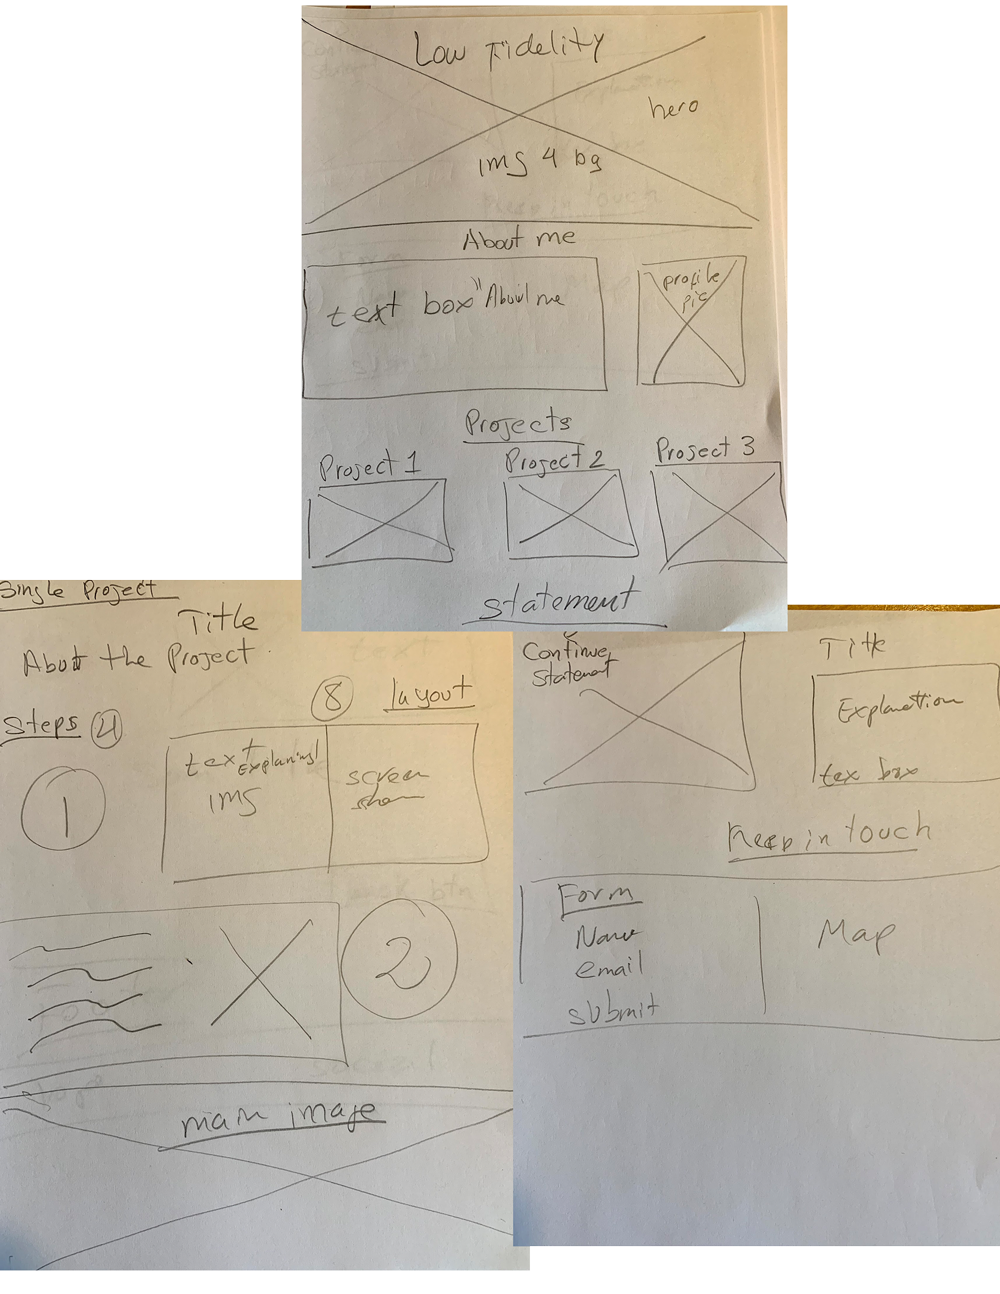 Low Fidelity
hero
img 4 bg
About me
text box "About me
profile
pic
Projects
Project 1
Project 2
Project 3
statement
Single Project
Title
About the Project
Steps 4
8 layout
1
text Explaining
img
screen
2
main image
Continue
statement
Title
Explanation
tex box
Keep in touch
Form
Name
email
submit
Map